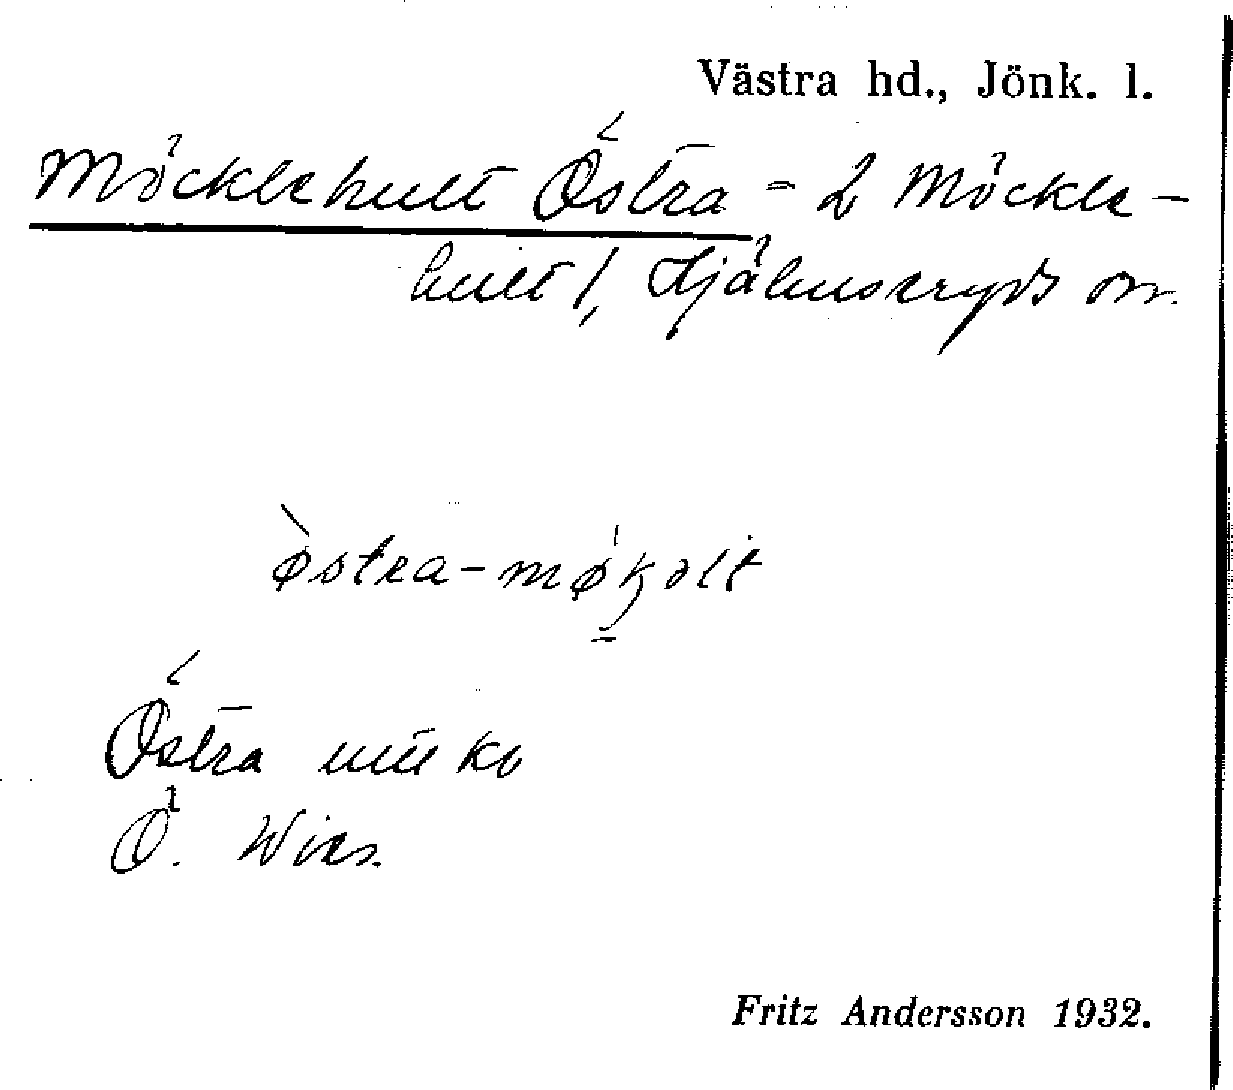 Västra hd., Jönk. l.
Möcklehult Östra = 2 Möckle-
hult 1, Hjälmseryds sn.
östra-møkəlt
Östra
Ö. Wirs.
Fritz Andersson 1932.